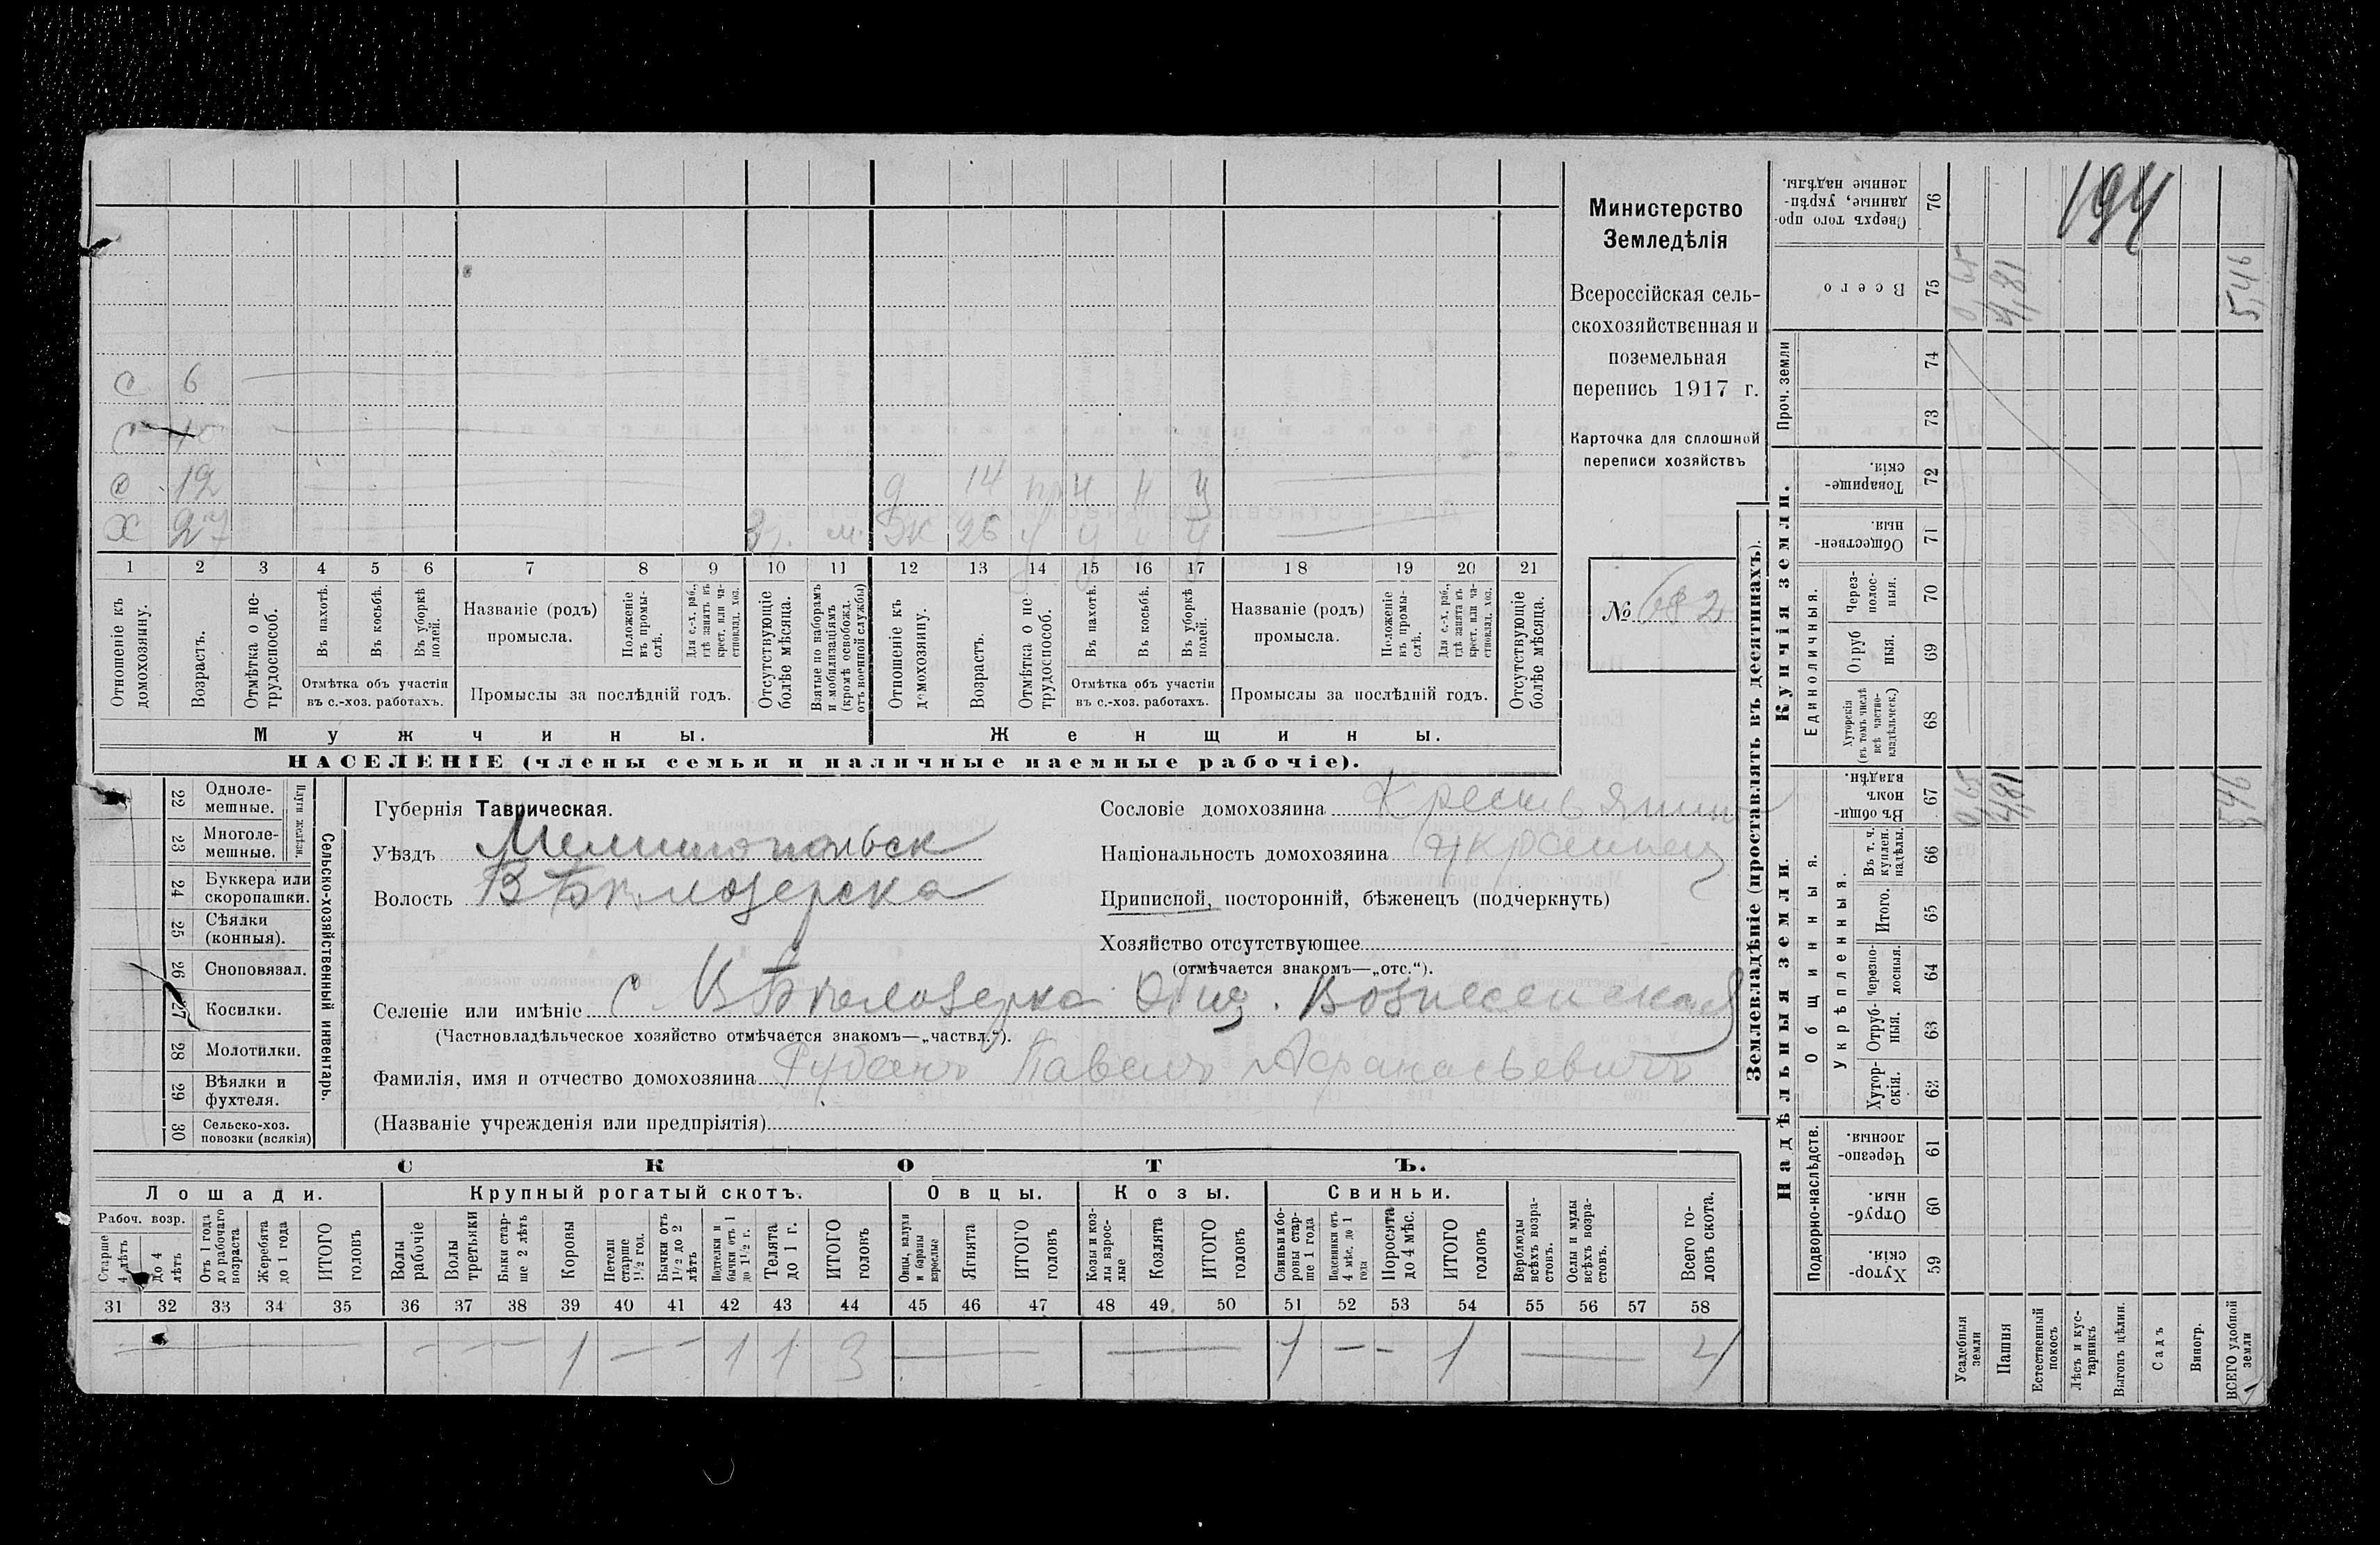 с 6
с 10
с 12 д 14 пр ч н у
Х 27 м. Ж 26 у у у у
1 2 3 4 5 6 7 8 9 10 11 12 13 14 15 16 17 18 19 20 21
Отношеніе къ домохозяину.
Возрастъ.
Отмѣтка о не-трудоспособ.
Въ пахотѣ.
Въ косьбѣ.
Въ уборкѣ полей.
Отмѣтка объ участіи въ с.-хоз. работахъ.
Названіе (родъ) промысла.
Положеніе въ промы-слѣ.
Для с.-х. раб., гдѣ занятъ въ крест. или ча-стновлад. хоз.
Промыслы за послѣдній годъ.
Отсутствующіе болѣе мѣсяца.
Взятые по наборамъ и мобилизаціямъ (кромѣ освобожд. отъ военной службы)
Отношеніе къ домохозяину.
Возрастъ.
Отмѣтка о не трудоспособ.
Въ пахотѣ.
Въ косьбѣ.
Въ уборкѣ полей.
Отмѣтка объ участіи въ с.-хоз. работахъ.
Названіе (родъ) промысла.
Положеніе въ промы-слѣ.
Для с.-х. раб., гдѣ занята въ крест. или ча-стновлад. хоз.
Промыслы за послѣдній годъ.
Отсутствующіе болѣе мѣсяца.
Мужчины. Женщины.
НАСЕЛЕНІЕ (члены семьи и наличные наемные рабочіе).
Министерство
Земледѣлія
Всероссійская сель-
скохозяйственная и
поземельная
перепись 1917 г.
Карточка для сплошной
переписи хозяйствъ
№
22 Одноле-мешные.
23 Многоле-мешные.
Плуги желѣзн.
24 Буккера или скоропашки.
25 Сѣялки (конныя).
26 Сноповязал.
27 Косилки.
28 Молотилки.
29 Вѣялки и фухтеля.
30 Сельско-хоз. повозки (всякія)
Сельско-хозяйственный инвентарь.
Губернія Таврическая.
Уѣздъ Мелитопольск
Волость В Бѣлозерска
Сословіе домохозяина Крестьянин
Національность домохозяина украинец
Приписной, посторонній, бѣженецъ (подчеркнуть)
Хозяйство отсутствующее
(отмѣчается знакомъ—„отс.“).
Селеніе или имѣніе с В Бѣлозерка Общ. Вознесенская
(Частновладѣльческое хозяйство отмѣчается знакомъ—„частвл.“).
Фамилія, имя и отчество домохозяина Рубанъ Павелъ Афанасьевичъ
(Названіе учрежденія или предпріятія)
СКОТЪ.
Лошади. Крупный рогатый скотъ. Овцы. Козы. Свиньи.
Рабоч. возр.
Старше 4 лѣтъ
До 4 лѣтъ
Отъ 1 года до рабочаго возраста
Жеребята до 1 года
ИТОГО головъ
Волы рабочіе
Волы третьяки
Быки стар-ше 2 лѣтъ
Коровы
Петели старше 1½ год.
Бычки отъ 1½ до 2 лѣтъ
Подтелки и бычки отъ 1 до 1½ г.
Телята до 1 г.
ИТОГО головъ
Овцы, валухи и бараны взрослые
Ягнята
ИТОГО головъ
Козы и коз-лы взрос-лые
Козлята
ИТОГО головъ
Свиньи и бо-ровы стар-ше 1 года
Подсвинки отъ 4 мѣс. до 1 года
Поросята до 4 мѣс.
ИТОГО головъ
Верблюды всѣхъ возра-стовъ.
Ослы и мулы всѣхъ возра-стовъ.
Всего го-ловъ скота.
31 32 33 34 35 36 37 38 39 40 41 42 43 44 45 46 47 48 49. 50 51 52 53 54 55 56 57 58
— — — — 1 — — 1 1 3 — — 1 — — 1 — 4
Землевладѣніе (проставлять въ десятинахъ).
Надѣльныя земли. Купчія земли. Проч. земли
Подворно-наслѣдств. Общинныя. Укрѣпленныя. Единоличныя.
Сверхъ того про-данные, укрѣп-ленные надѣлы. 76
Всего 75
74
73
Товарище-скія. 72
Обществен-ныя. 71
Черезполос-ныя. 70
Отруб ныя. 69
Хуторскія (въ томъ числѣ всѣ частно-владѣльческ.) 68
Въ общи-номъ владѣн. 67
Въ т. ч. куплен. надѣлы. 66
Итого. 65
Черезпо-лосныя. 64
Отруб-ныя. 63
Хутор-скія. 62
Черезпо-лосныя. 61
Отруб-ныя. 60
Хутор-скія. 59
194
0,65 4,81 5,46
0,65 4,81 5,46
Усадебныя земли
Пашня
Естественный покосъ
Лѣсъ и кус-тарникъ
Выгонъ цѣлин.
Садъ
Виногр.
ВСЕГО удобной земли